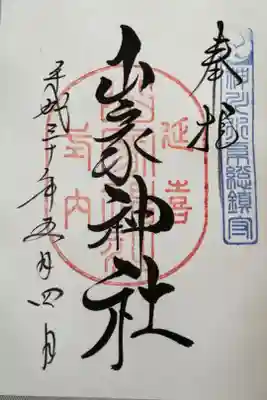 奉拝
總鎮守
延喜
山家神社
式内
平成三十年五月四日